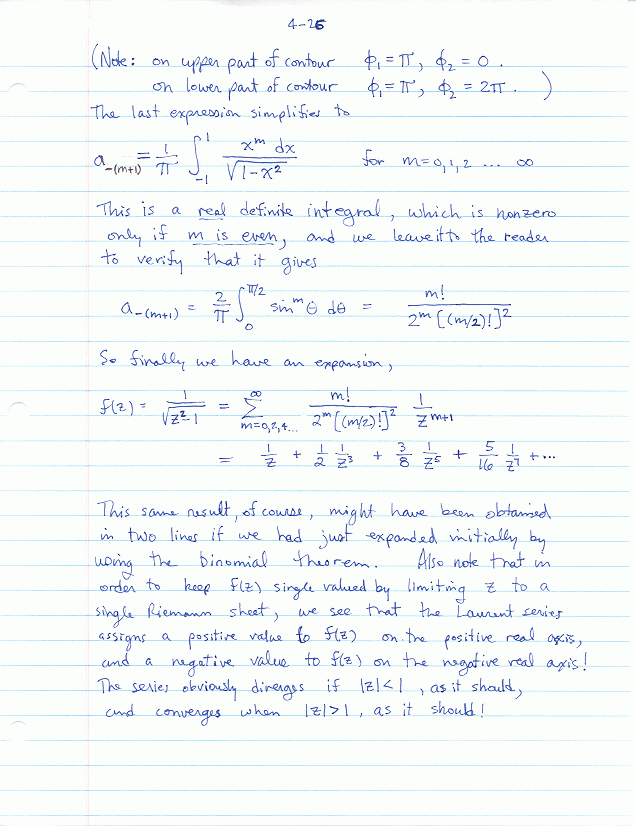 4-26
(Note: on upper part of contour φ₁ = π, φ₂ = 0.
on lower part of contour φ₁ = π, φ₂ = 2π. )
The last expression simplifies to
a_{-(m+1)} = \frac{1}{π} \int_{-1}^{1} \frac{x^m dx}{\sqrt{1-x^2}} for m=0,1,2 ... ∞
This is a real definite integral, which is nonzero
only if m is even, and we leave it to the reader
to verify that it gives
a_{-(m+1)} = \frac{2}{π} \int_0^{π/2} sin^m θ dθ = \frac{m!}{2^m [(m/2)!]^2}
So finally we have an expansion,
f(z) = \frac{1}{\sqrt{z^2-1}} = \sum_{m=0,2,4...}^{∞} \frac{m!}{2^m [(m/2)!]^2} \frac{1}{z^{m+1}}
= \frac{1}{z} + \frac{1}{2} \frac{1}{z^3} + \frac{3}{8} \frac{1}{z^5} + \frac{5}{16} \frac{1}{z^7} + ...
This same result, of course, might have been obtained
in two lines if we had just expanded initially by
using the binomial theorem. Also note that in
order to keep f(z) single valued by limiting z to a
single Riemann sheet, we see that the Laurent series
assigns a positive value to f(z) on the positive real axis,
and a negative value to f(z) on the negative real axis!
The series obviously diverges if |z|<1, as it should,
and converges when |z|>1, as it should!